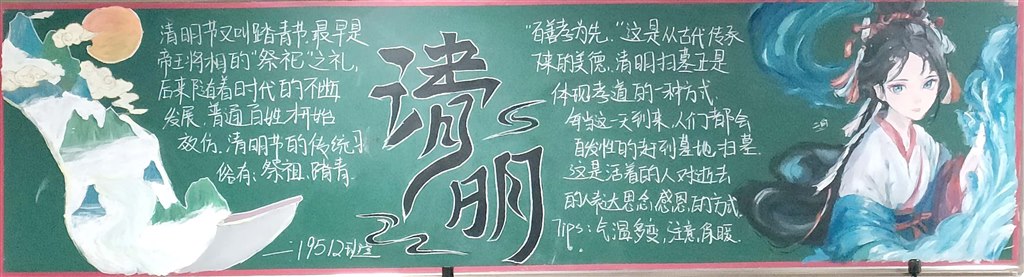 清明节又叫踏青节,最早是
帝王将相的“祭祀”之礼,
后来随着时代的不断
发展,普通百姓才开始
效仿.清明节的传统习
俗有:祭祖、踏青.
一19512班宣
清明
“百善孝为先,”这是从古代传承
下来的美德.清明扫墓正是
体现孝道的一种方式.
每当这一天到来,人们都会
自发性的赶到墓地扫墓.
这是活着的人对逝去
的人表达思念,感恩的方式.
Tips:气温多变,注意保暖.